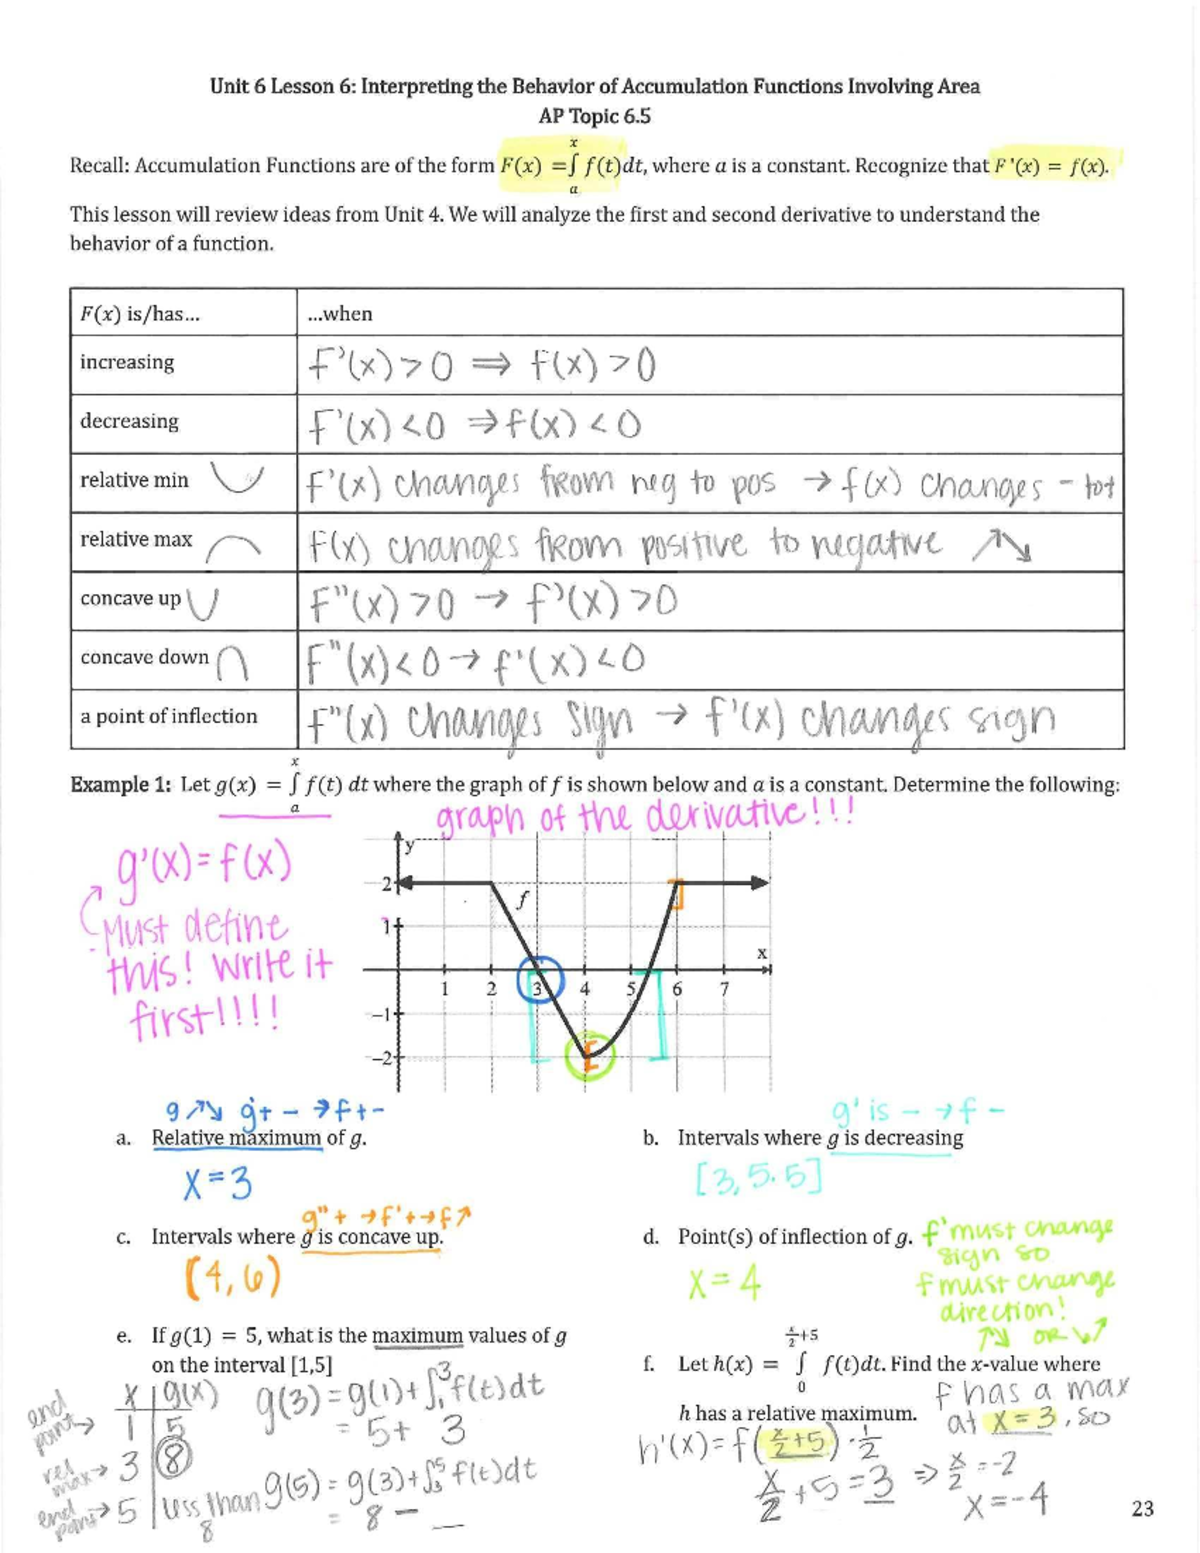 Unit 6 Lesson 6: Interpreting the Behavior of Accumulation Functions Involving Area
AP Topic 6.5
Recall: Accumulation Functions are of the form F(x) = ∫ₐˣ f(t)dt, where a is a constant. Recognize that F'(x) = f(x).
This lesson will review ideas from Unit 4. We will analyze the first and second derivative to understand the
behavior of a function.
F(x) is/has... ...when
increasing F'(x) > 0 ⇒ f(x) > 0
decreasing F'(x) < 0 ⇒ f(x) < 0
relative min F'(x) changes from neg to pos → f(x) changes - to +
relative max f(x) changes from positive to negative ↗↘
concave up F"(x) > 0 → f'(x) > 0
concave down F"(x) < 0 → f'(x) < 0
a point of inflection F"(x) changes sign → f'(x) changes sign
Example 1: Let g(x) = ∫ₐˣ f(t) dt where the graph of f is shown below and a is a constant. Determine the following:
graph of the derivative!!!
g'(x) = f(x)
Must define
this! Write it
first!!!!
y
2
f
1
x
1 2 3 4 5 6 7
-1
-2
g ↗↘ g'+ - → f + -
a. Relative maximum of g.
x = 3
g' is - → f -
b. Intervals where g is decreasing
[3, 5.5]
g"+ → f'+ → f↗
c. Intervals where g is concave up.
(4, 6)
d. Point(s) of inflection of g. f' must change
sign so
f must change
direction!
↗↘ OR ↘↗
x = 4
e. If g(1) = 5, what is the maximum values of g
on the interval [1,5]
x | g(x)
end point → 1 | 5
rel max → 3 | 8
end point → 5 | less than 8
g(3) = g(1) + ∫₁³ f(t)dt
= 5 + 3
g(5) = g(3) + ∫₃⁵ f(t)dt
= 8 - _
f. Let h(x) = ∫₀^(x/2+5) f(t)dt. Find the x-value where
h has a relative maximum.
f has a max
at x = 3, so
h'(x) = f(x/2+5) · 1/2
x/2 + 5 = 3 ⇒ x/2 = -2
x = -4
23